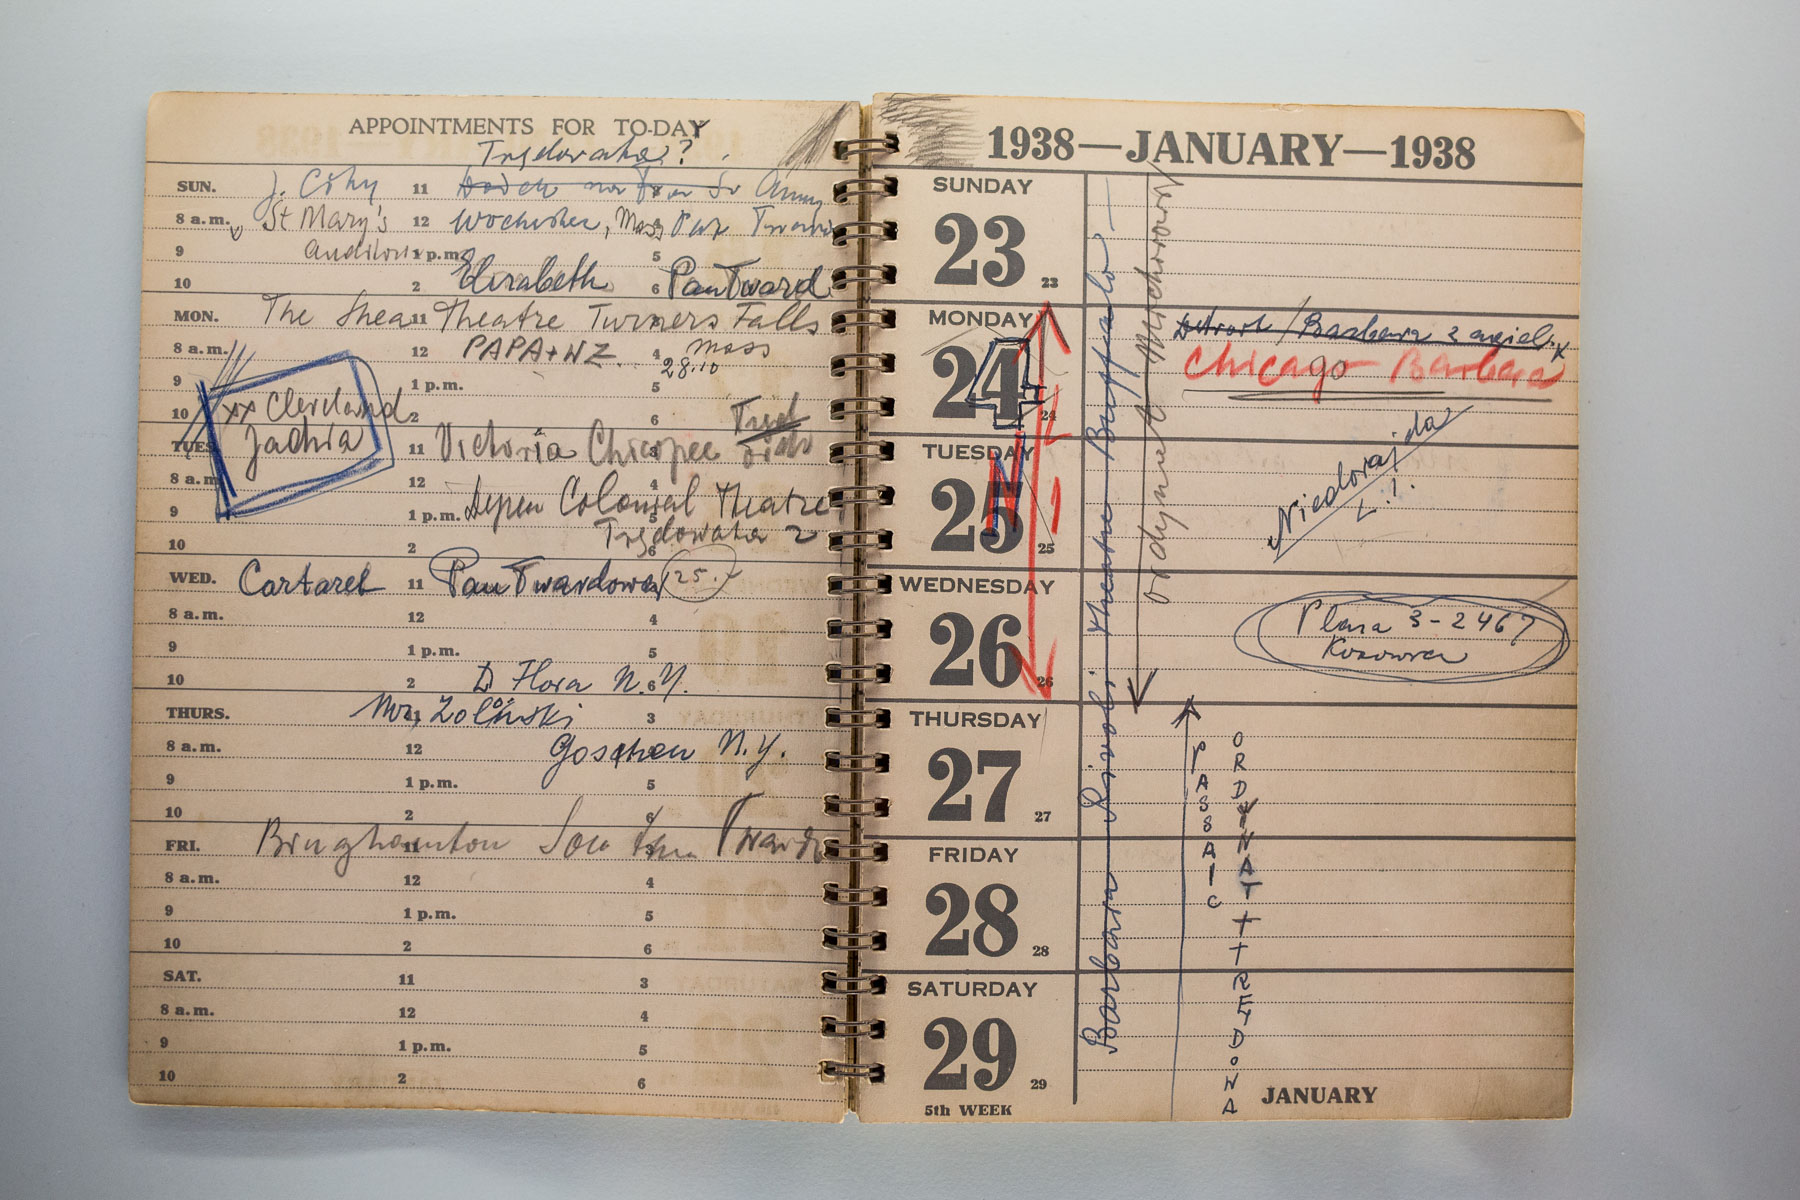 APPOINTMENTS FOR TO-DAY
Trędowata?
SUN. J. Cohy 11
8 a.m. St Mary's 12 Mass Pan
9 1 p.m. 5
10 2 Elizabeth 6 Pan Tward
MON. The Shea 11 Theatre Turners Falls
8 a.m. 12 PAPA + NZ 4 Mass
28.10
9 1 p.m. 5
10 xx Cleveland 2 6
TUES. Jadzia 11 Victoria Chicopee
8 a.m. 12 4
9 1 p.m. Depew Colonial Theatre 5
Trędowata 2
10 2 6
WED. Cartaret 11 Pan Twardowski 25.
8 a.m. 12 4
9 1 p.m. 5
10 2 Flora N.Y. 6
THURS. Mr. Zoliński 3
8 a.m. 12 Goschen N.Y.
9 1 p.m. 5
10 2 6
FRI. Binghamton 11 Tward
8 a.m. 12 4
9 1 p.m. 5
10 2 6
SAT. 11 3
8 a.m. 12 4
9 1 p.m. 5
10 2 6
1938—JANUARY—1938
SUNDAY
23 23
MONDAY
24 24
TUESDAY
25 25
WEDNESDAY
26 26
THURSDAY
27 27
FRIDAY
28 28
SATURDAY
29 29
5th WEEK
Barbara Rivoli theatre Buffalo —
Ordynat Michorowski
Detroit / Barbara z
Chicago Barbara
Niedorajda
L.!.
Plaza 3-2467
PASSAIC
ORDYNAT + TREDOWA
JANUARY